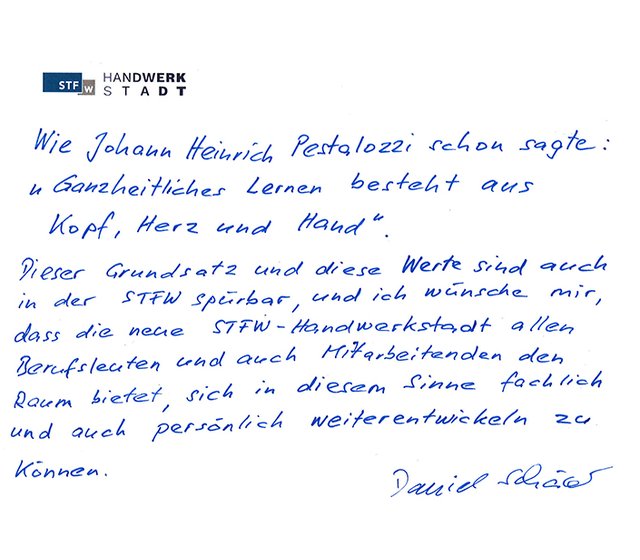 STFW HANDWERK
STADT
Wie Johann Heinrich Pestalozzi schon sagte:
„Ganzheitliches Lernen besteht aus
Kopf, Herz und Hand“.
Dieser Grundsatz und diese Werte sind auch
in der STFW spürbar, und ich wünsche mir,
dass die neue STFW-Handwerkstadt allen
Berufsleuten und auch Mitarbeitenden den
Raum bietet, sich in diesem Sinne fachlich
und auch persönlich weiterentwickeln zu
können.
Daniel